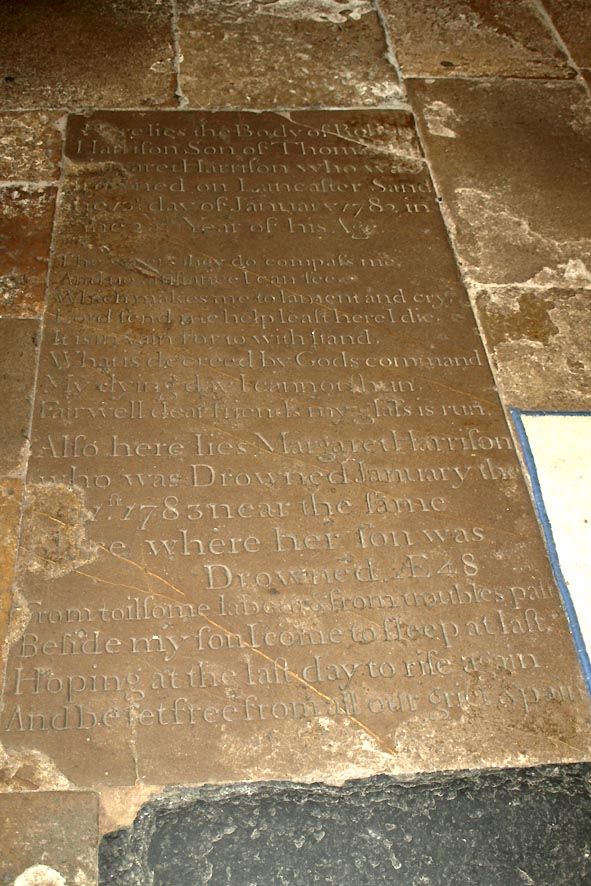 Here lies the Body of Rob
Harriſon Son of Thom
Margaret Harriſon who was
drowned on Lancaſter Sand
the day of January 1782, in
the Year of his Age
The waters they do compaſs me,
And no aſſiſtance I can ſee
Which makes me to lament and cry,
Lord ſend me help leaſt here I die.
It is in vain for to withſtand,
What is decreed by Gods command
My dying day I cannot ſhun,
Fairwell dear friends my glaſs is run.
Alſo here lies Margaret Harriſon
who was Drowned January the
1ſt 1783 near the ſame
where her ſon was
Drowned, Æ 48
From toilſome labours from troubles paſt
Beſide my ſon I come to ſleep at laſt,
Hoping at the laſt day to riſe again
And be ſet free from all our grief & pain